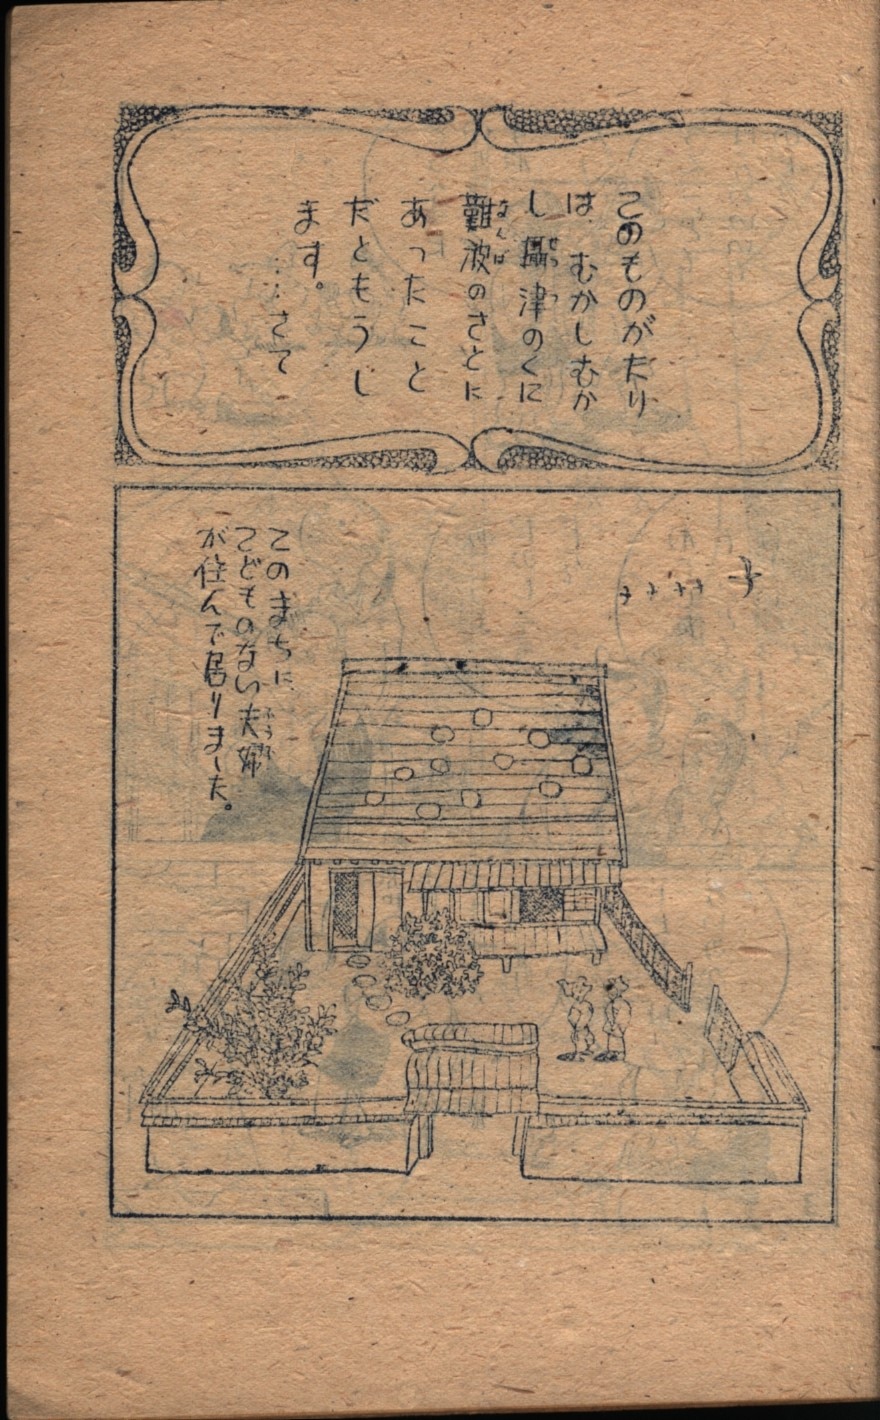 このものがたり
は、むかしむか
し攝津のくに
難波のさとに
あったこと
だともうし
ます。
……さて
このまちに、
こどものない夫婦
が住んで居りました。